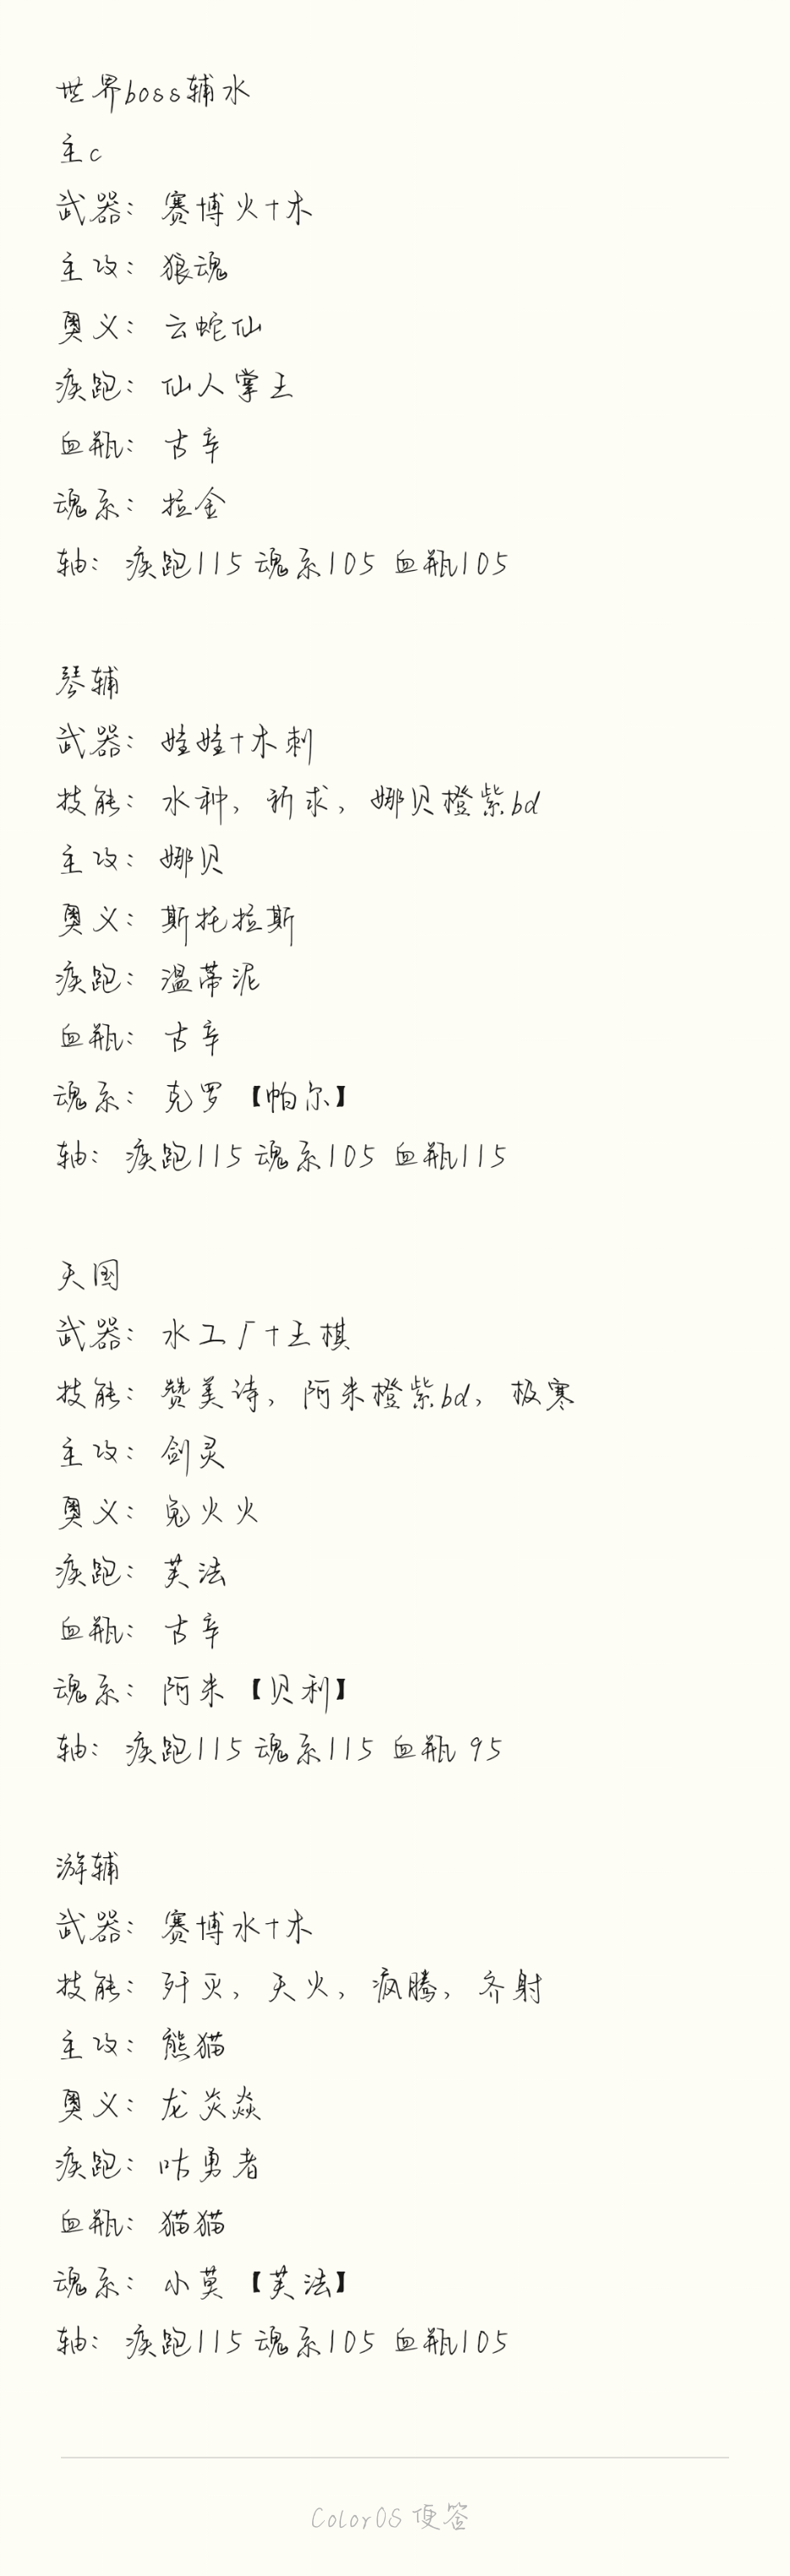 世界boss辅水
主c
武器：赛博火+木
主攻：狼魂
奥义：云蛇仙
疾跑：仙人掌王
血瓶：古辛
魂系：拉金
轴：疾跑115 魂系105 血瓶105
琴辅
武器：娃娃+木刺
技能：水种，祈求，娜贝橙紫bd
主攻：娜贝
奥义：斯托拉斯
疾跑：温蒂泥
血瓶：古辛
魂系：克罗【帕尔】
轴：疾跑115 魂系105 血瓶115
天国
武器：水工厂+王棋
技能：赞美诗，阿米橙紫bd，极寒
主攻：剑灵
奥义：鬼火火
疾跑：芙法
血瓶：古辛
魂系：阿米【贝利】
轴：疾跑115 魂系115 血瓶 95
游辅
武器：赛博水+木
技能：歼灭，天火，疯腾，齐射
主攻：熊猫
奥义：龙炎焱
疾跑：咕勇者
血瓶：猫猫
魂系：小莫【芙法】
轴：疾跑115 魂系105 血瓶105
ColorOS 便签